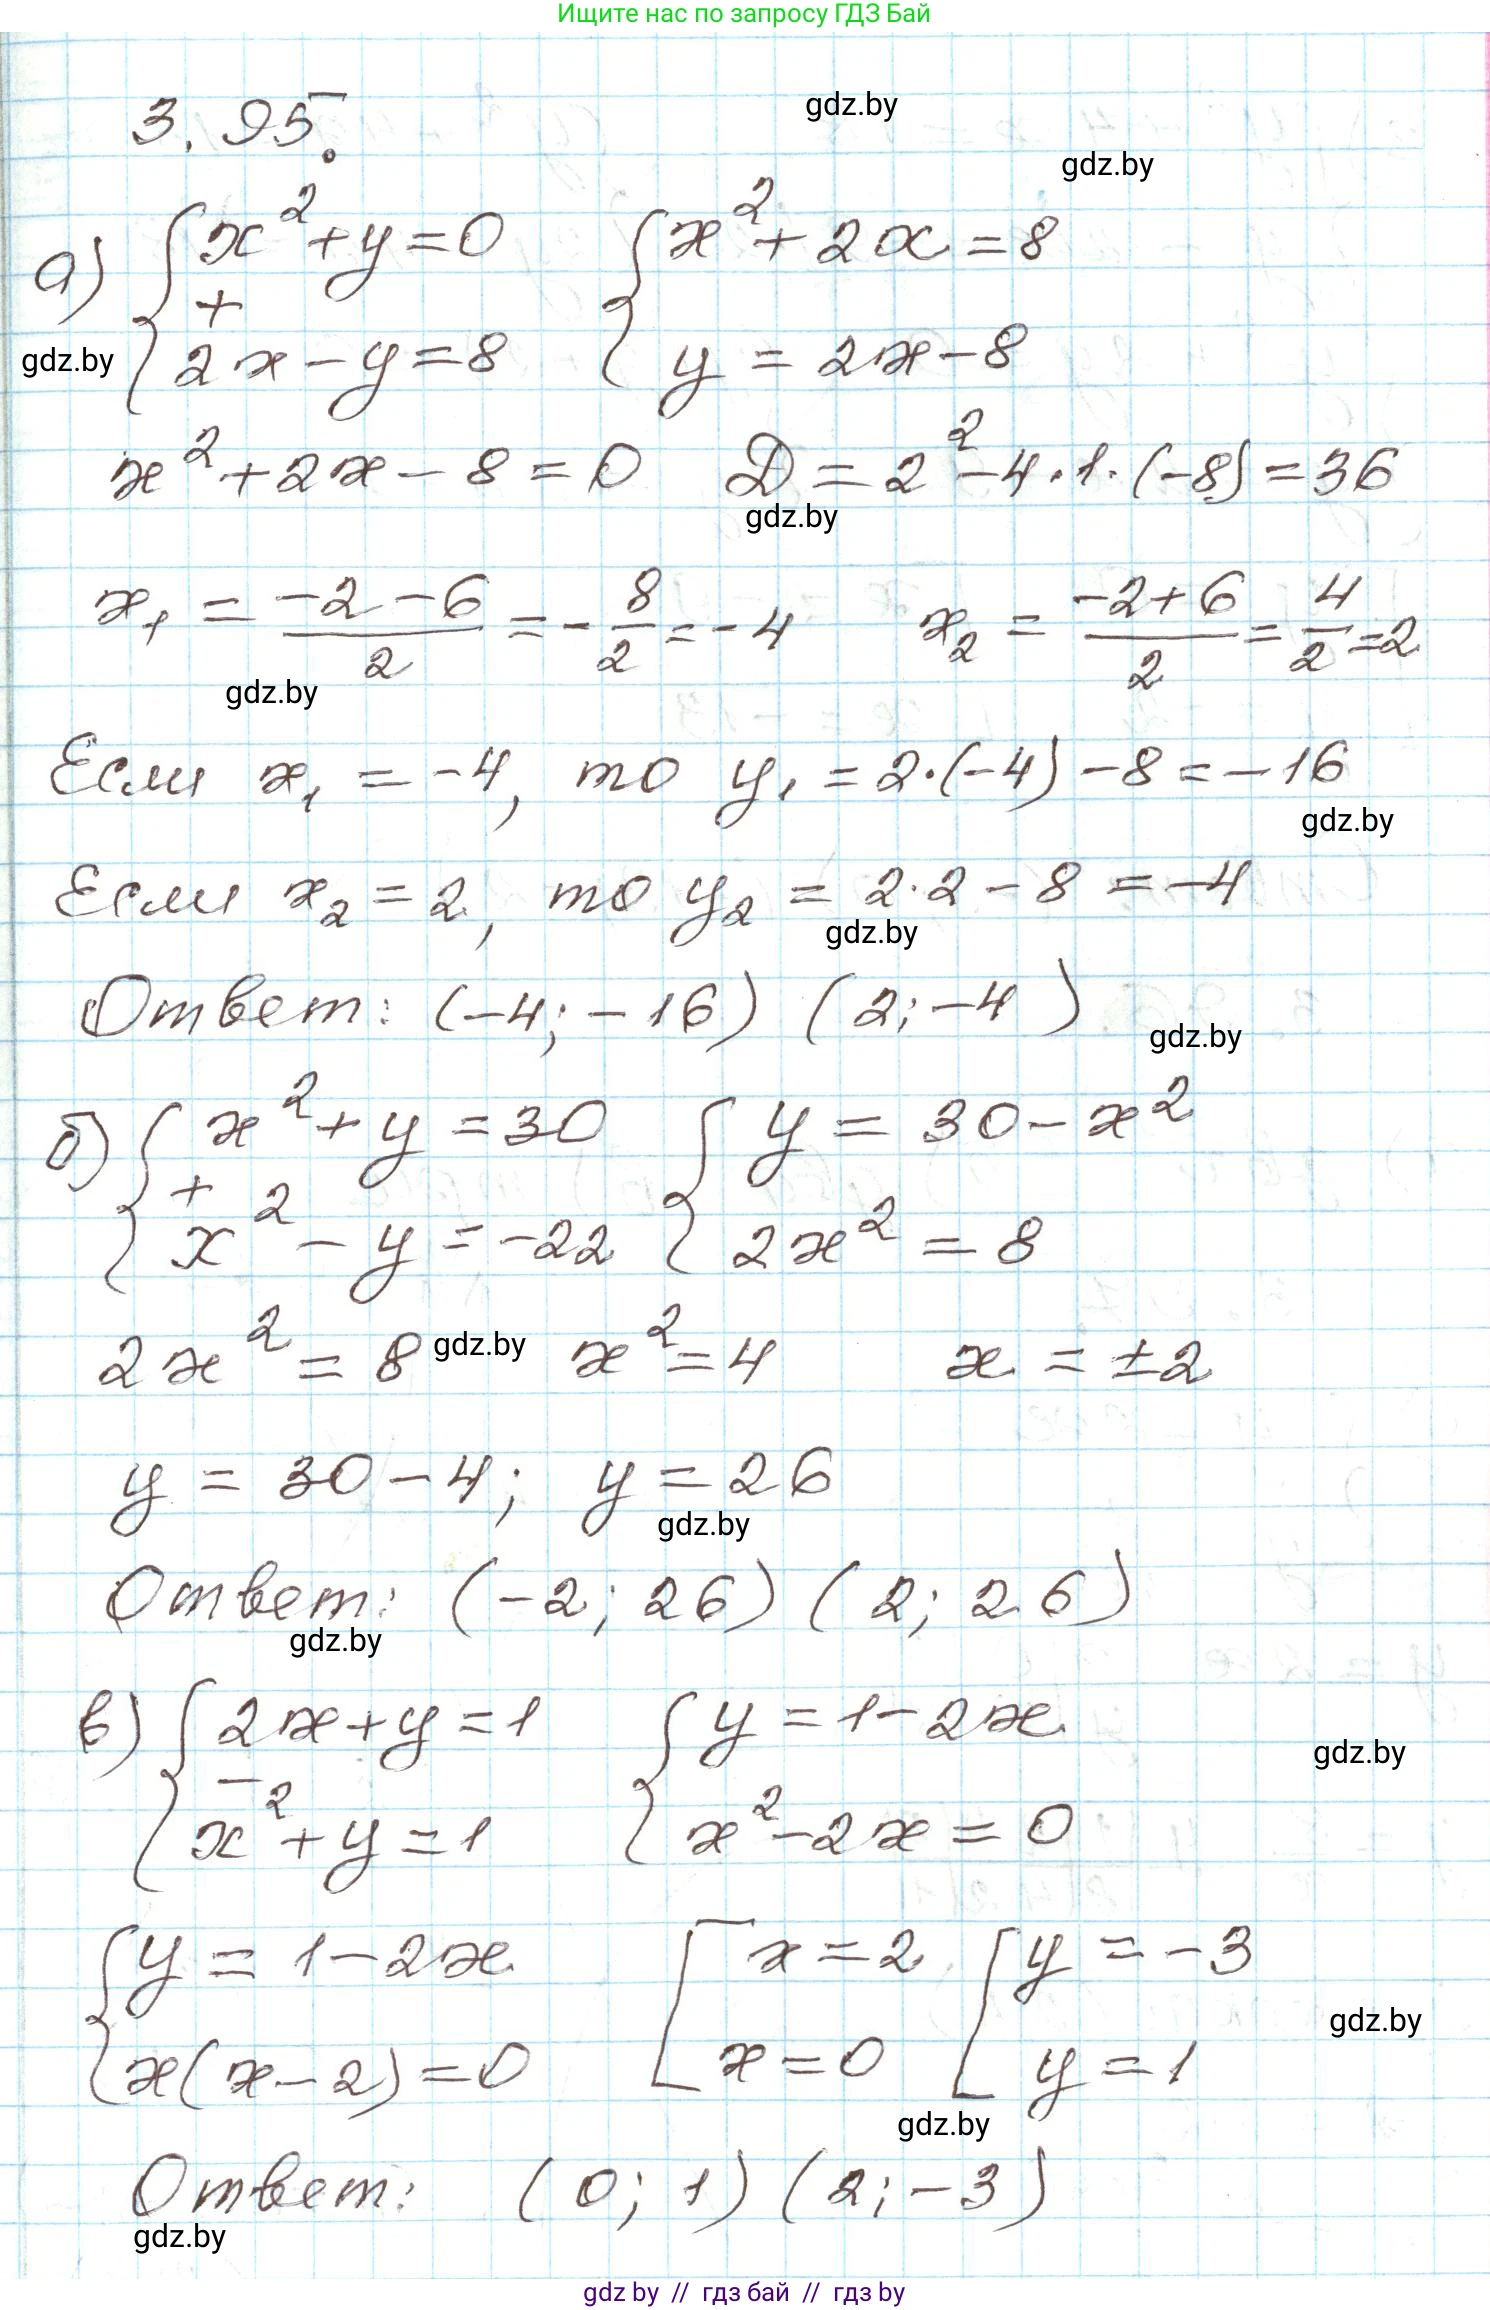 Ищите нас по запросу ГДЗ Бай
3.95.
gdz.by
gdz.by
а) { x² + y = 0 { x² + 2x = 8
+
2x - y = 8 y = 2x - 8
gdz.by
x² + 2x - 8 = 0 D = 2² - 4·1·(-8) = 36
gdz.by
x₁ = (-2 - 6)/2 = -8/2 = -4 x₂ = (-2 + 6)/2 = 4/2 = 2
gdz.by
Если x₁ = -4, то y₁ = 2·(-4) - 8 = -16
gdz.by
Если x₂ = 2, то y₂ = 2·2 - 8 = -4
gdz.by
Ответ: (-4; -16) (2; -4)
gdz.by
б) { x² + y = 30 { y = 30 - x²
+
x² - y = -22 2x² = 8
2x² = 8 gdz.by x² = 4 x = ±2
y = 30 - 4; y = 26
gdz.by
Ответ: (-2; 26) (2; 26)
gdz.by
в) { 2x + y = 1 { y = 1 - 2x
gdz.by
-
x² + y = 1 x² - 2x = 0
{ y = 1 - 2x [ x = 2 [ y = -3
gdz.by
x(x - 2) = 0 x = 0 y = 1
gdz.by
Ответ: (0; 1) (2; -3)
gdz.by
gdz by // гдз бай // гдз by